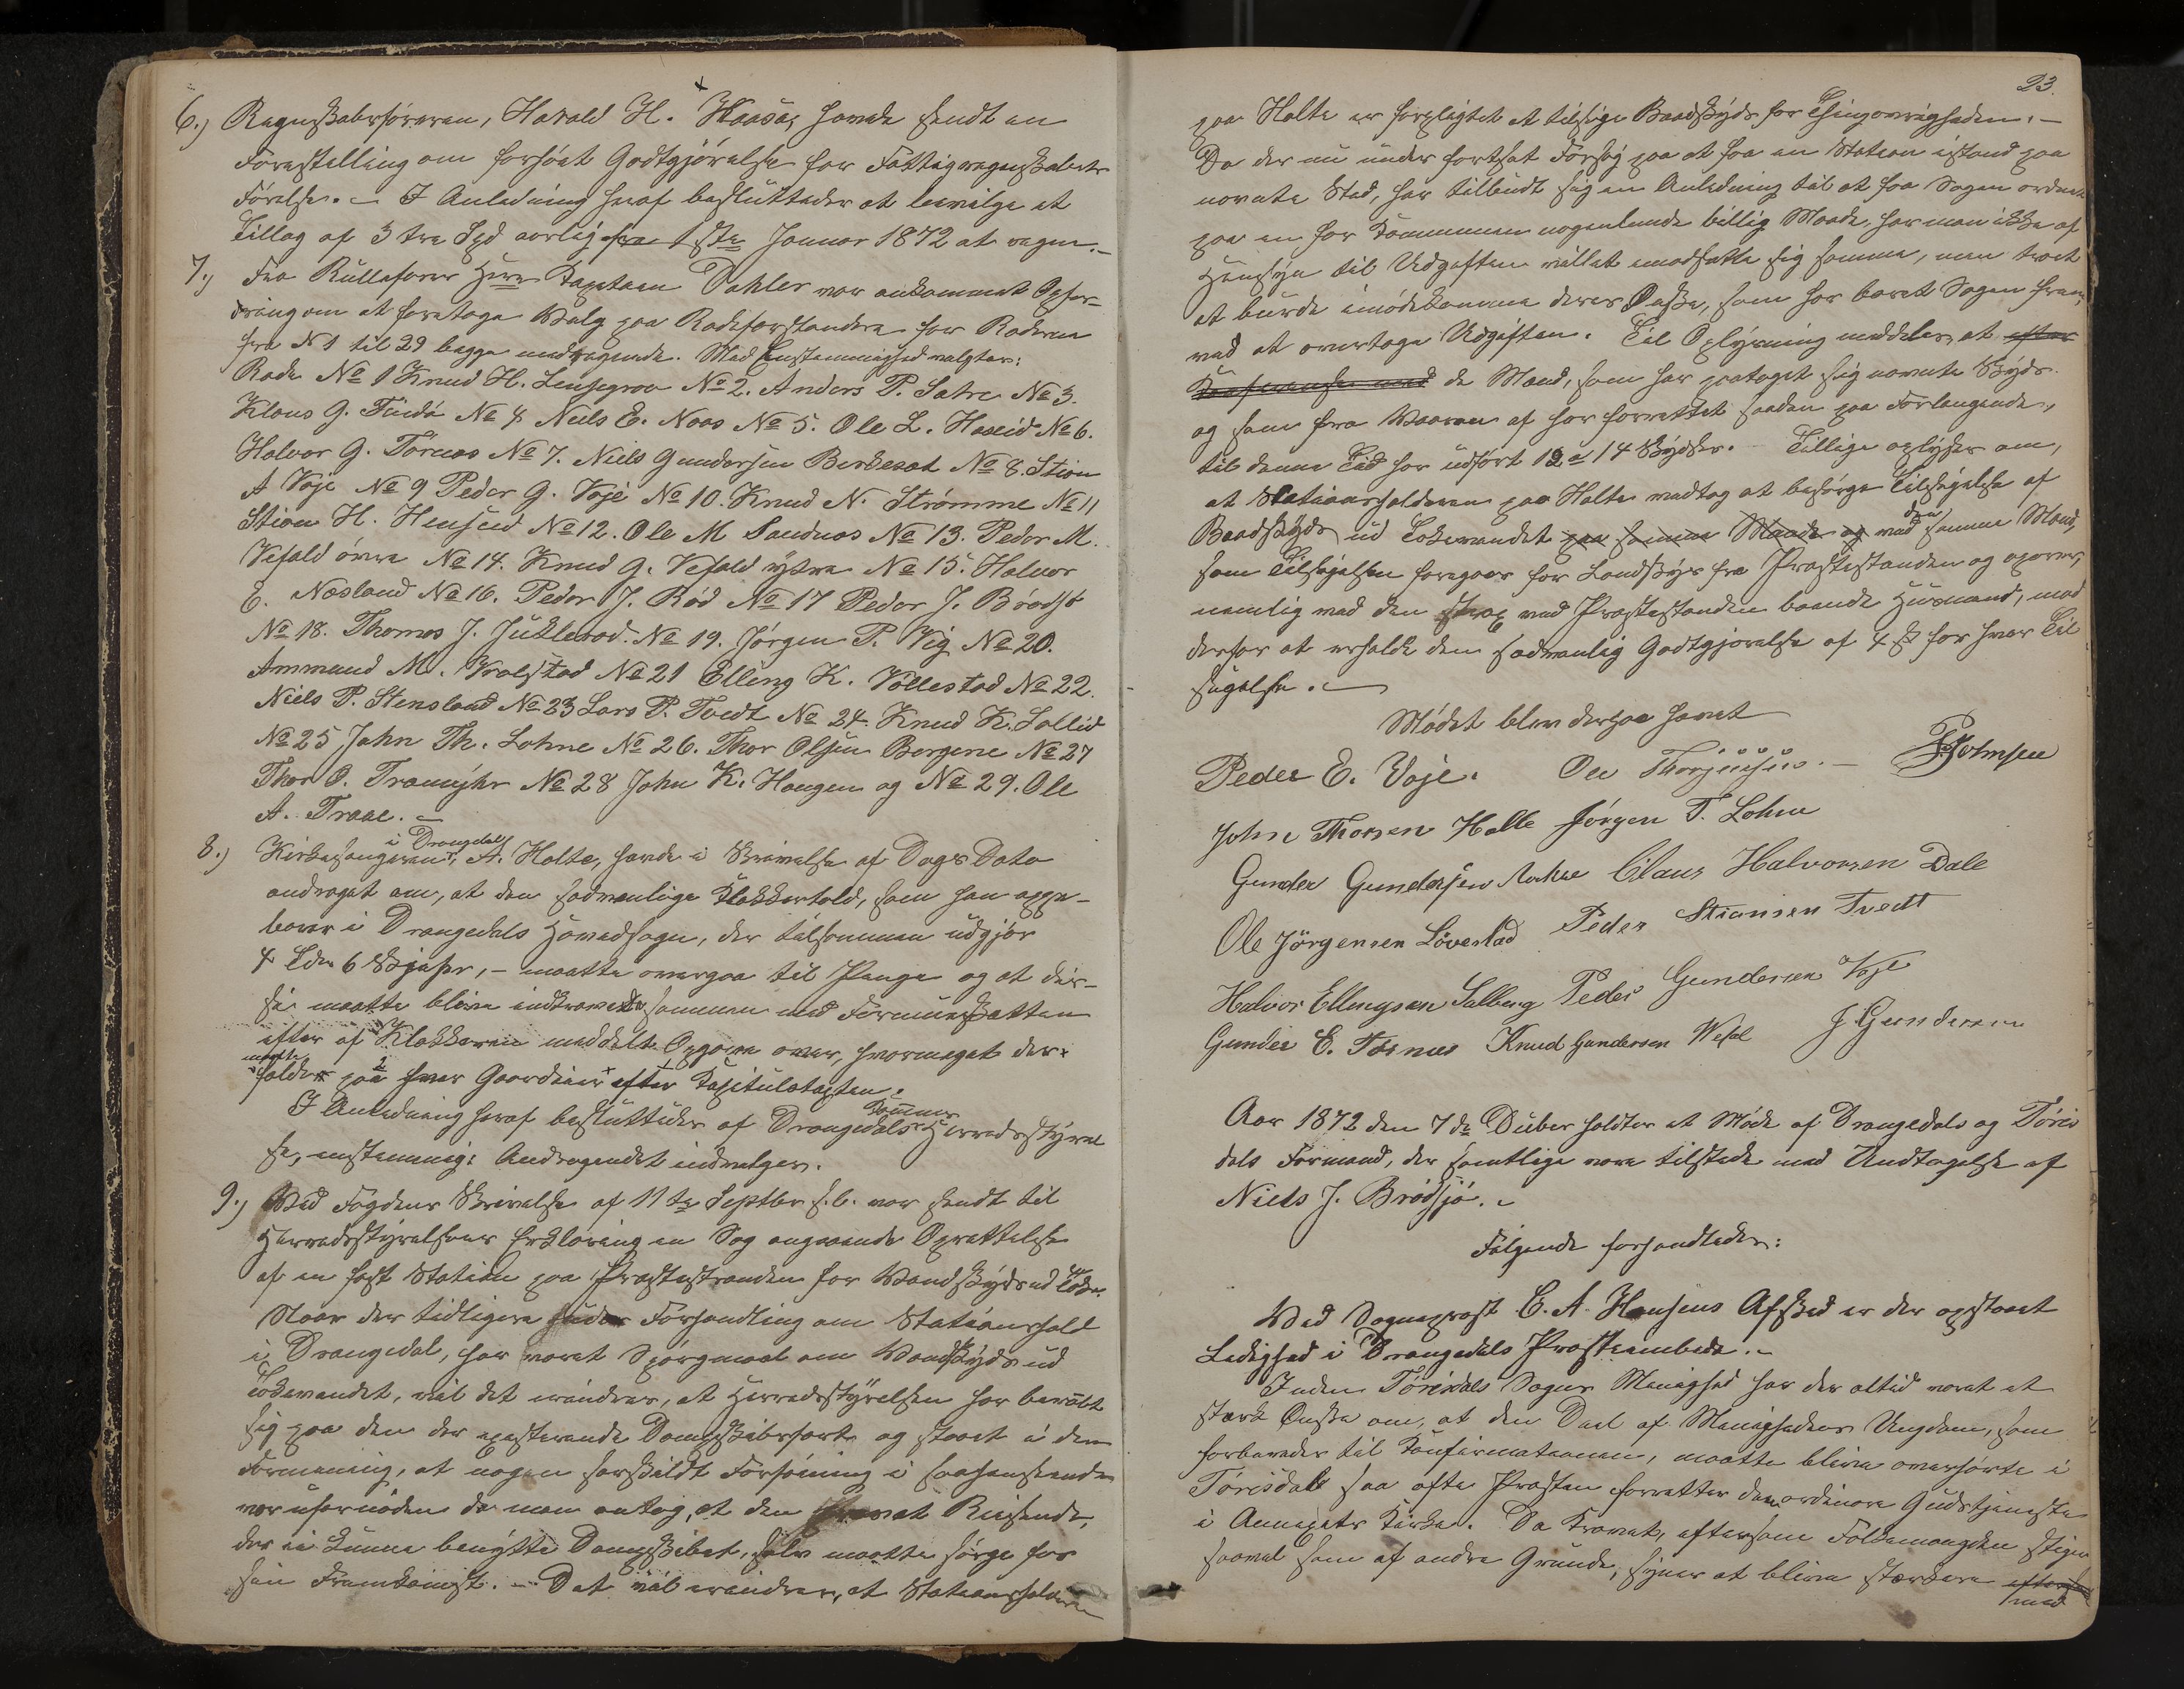 6.) Regnskabsføreren, Harald H. Haasa, havde sendt en
Forestilling om forhøiet Godtgjørelse for Fattigregnskabets
Førelse. – I Anledning heraf besluttedes at bevilge et
Tillæg af 3 tre Spd aarlig fra 1ste Januar 1872 at regne. –
7.) Fra Rullefører Herr Kaptain Dahler var ankommet Opfor-
dring om at foretage Valg paa Rodeforstandere for Roderne
fra No 1 til 29 begge medregnede. Med Enstemmighed valgtes:
Rode No 1 Knud H. Lensegrav No 2. Anders P. Satre No 3.
Klaus G. Tveidt No 4 Neils E. Naas No 5. Ole L. Haseid No 6.
Halvor G. Törnes No 7. Niels Gundersen Berkesat No 8. Stian
A Voje No 9 Peder G. Voje No 10. Knud N. Strømme No 11
Stian H. Henseid No 12. Ole M Sandnes No 13. Peder M.
Vefald øvre No 14. Knud G. Vefald ytre No 15. Halvor
E. Næsland No 16. Peder J. Rød No 17 Peder J. Brødsjø
No 18. Thomas J. Juklerød. No 19. Jørgen P. Vig No 20.
Ammund M. Kralstad No 21 Elling K. Vøllestad No 22.
Niels P. Stensland No 23 Lars P. Tvedt No 24. Knud K. Solleid
No 25 John Th. Lohne No 26. Thor Olsen Bergene No 27
Thor O. Tramyhr No 28 John K. Haugen og No 29. Ole
A. Traae. –
8.) Kirkesangeren i Drangedal, A. Holte, havde i Skrivelse af Dags Dato
andraget om, at den sædvanlige Klokkertold, som han oppe-
bærer i Drangedals Hovedsogn, der tilsammen udgjør
4 Tdr 6 Skjæpr, – maatte overgaa til Penge og at dis-
se maatte blive indkrævede sammen med Formueskatten
efter af Klokkeren meddelt Opgave over, hvormeget der
maatte falde paa hver Gaardeier efter Kapitelstaxten.
I Anledning heraf besluttedes af Drangedals Sogns Herredsstyrel
se, enstemmig: Andragendet indvilges.
9.) Ved Fogdens Skrivelse af 11te Septbr f. A. var sendt til
Herredsstyrelsens Erklæring en Sag angaaende Oprettelse
af en fast Station paa Præstestranden for Vandskyds ud Toke.
Naar der tidligere under Forhandling om Stationshold
i Drangedal, har været Spørgsmaal om Vandskyds ud
Tokevandet, vil det erindres, at Herredsstyrelsen har beraabt
sig paa den der existerende Dampskibsfart og staaet i den
Formening, at nogen særskildt Forføining i saahenseende
var ufornøden da man antog, at den privat Reisende,
der ei kunne benytte Dampskibet, selv maatte sørge for
sin Fremkomst. – Det vil erindres, at Stationsholderen
23.
paa Holte er forpligtet at tilsige Baadskyds for Thingøvrigheden. –
Da der nu under fortsat Forsøg paa at faa en Station istand paa
nævnte Sted, har tilbudt sig en Anledning til at faa Sagen ordnet
paa en for Kommunen nogenlunde billig Maade, har man ikke af
Hensyn til Udgiften villet modsætte sig samme, men troet
at burde imødekomme deres Ønske, som har baaret Sagen frem,
ved at overtage Udgiften. Til Oplysning meddeles, at efter
de Mænd, som har paataget sig nævnte Skyds
og som fra Vaaren af har forrettet saadan paa Forlangende,
til denne Tid har udført 12 a 14 Skydser. – Tillige oplyses om,
at Stationsholderen paa Holte vedtog at besørge Tilsigelse af
Baadskyds ud Tokevandet paa samme Maade og ved den samme Mand,
som Tilsigelsen foregaar for Landskyds fra Præstestranden og opover,
nemlig ved den strax ved Præstestranden boende Husmand, mod
derfor at erholde den sædvanlig Godtgjørelse af 4 ß for hver Til
sigelse. –
Mødet blev derpaa hævet
Peder E. Voje. Ole Thorjussen. – Holmsen
John Thorsen Holte Jörgen T. Lohne
Gunder Gundersen Claus Halvorsen Dale
Ole Jörgensen Löverstad Peder Stiansen Tvedt
Halvor Ellingsen Solberg Peder Gundersen Voje
Gunder E. Tørnes Knud Gundersen Wefal J Gundersen
Aar 1872 den 7de Decber holdtes et Møde af Drangedals og Tøris
dals Formænd, der samtlige vare tilstede med Undtagelse af
Niels J. Brødsjø. –
Følgende forhandledes:
Ved Sogneprest C. A. Hansens Afsked er der opstaaet
Ledighed i Drangedals Præsteembede. –
Inden Tørisdals Sogns Menighed har der altid været et
stærk Ønske om, at den Deel af Menighedens Ungdom, som
forberedes til Konfirmationen, maatte blive overhørte i
Tørisdal saa ofte Præsten forretter den ordinære Gudstjeneste
i Annexets Kirke. Da Kravet, eftersom Folkemængden stiger
saavel som af andre Grunde, synes at blive stærkere eftersom
med